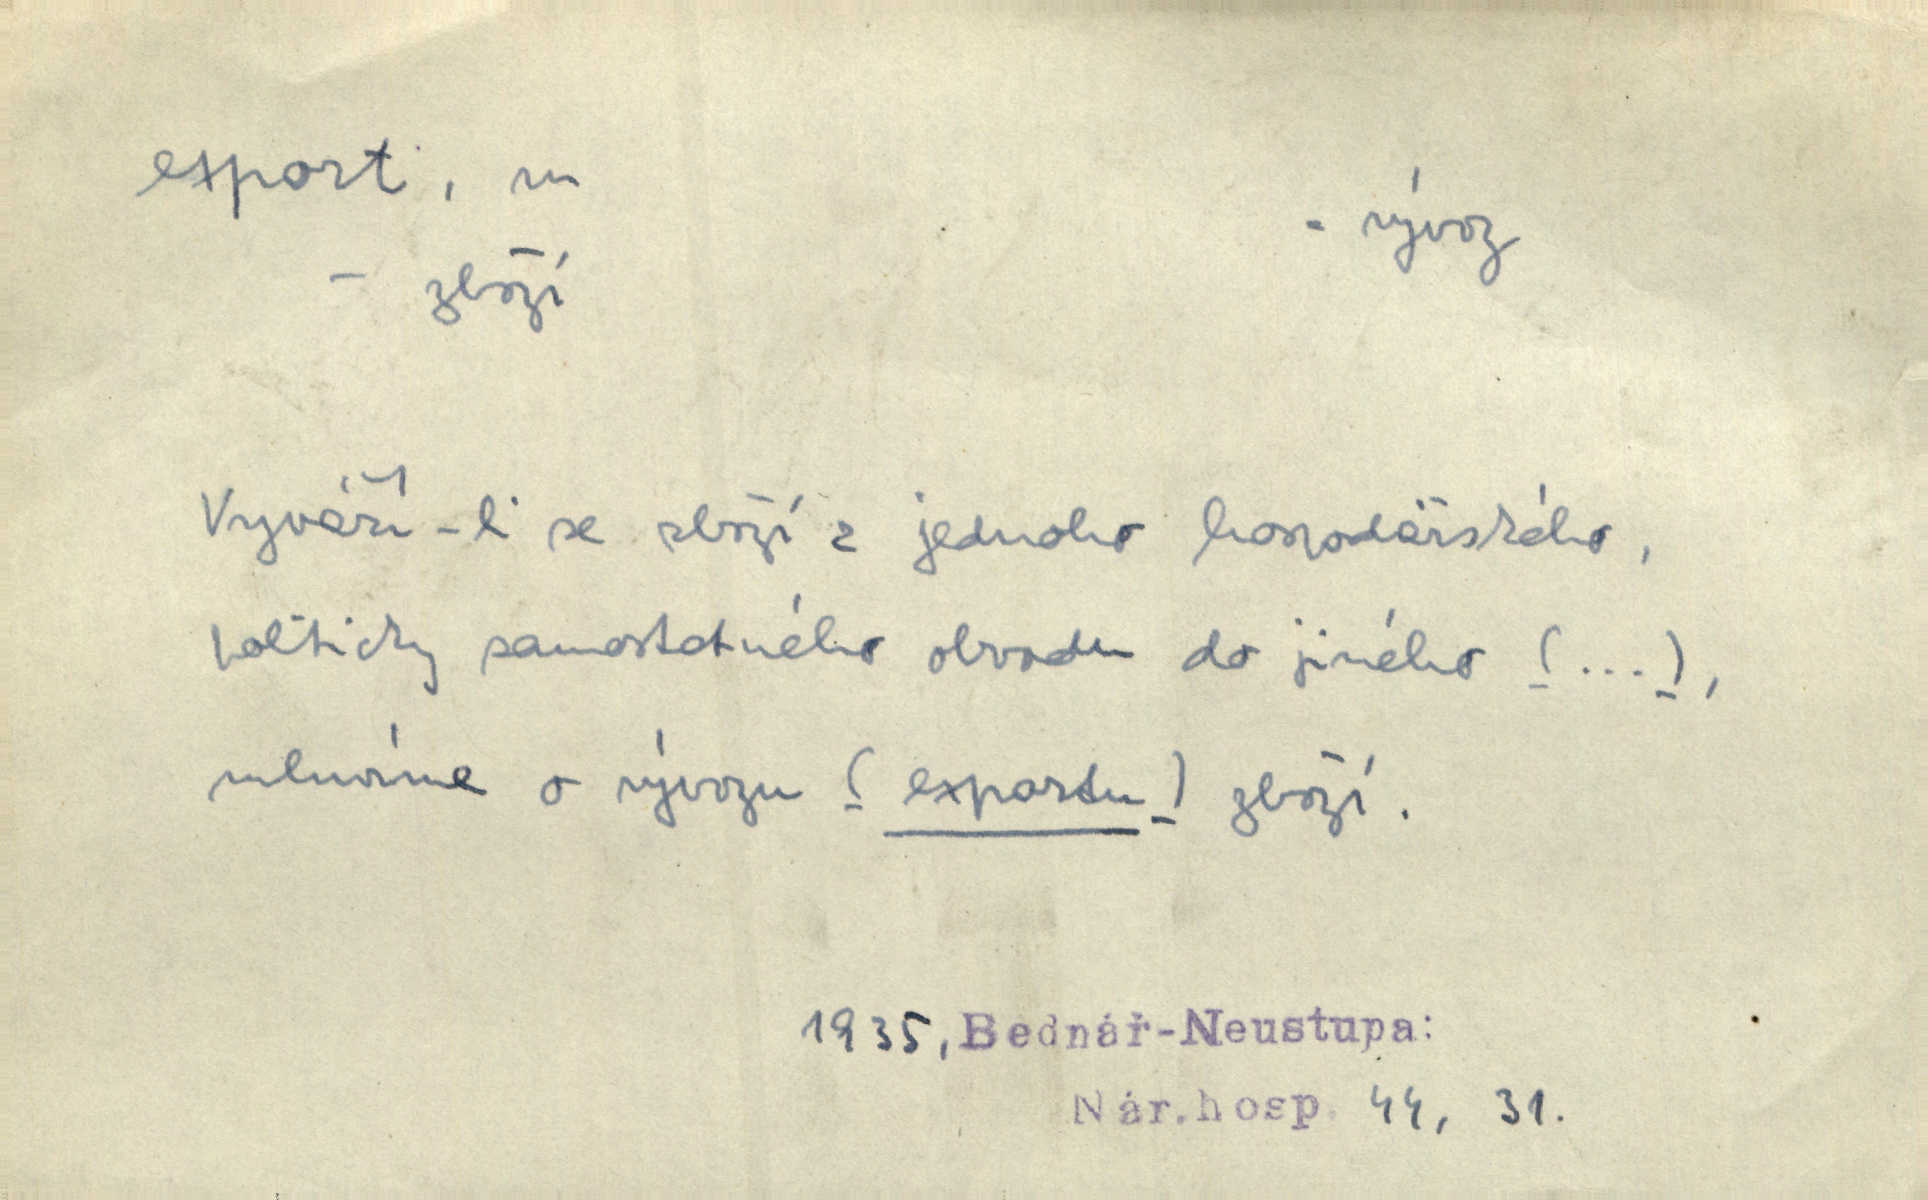 export, m
- vývoz
- zboží
Vyváží-li se zboží z jednoho hospodářského,
politicky samostatného obvodu do jiného (...),
mluvíme o vývozu (exportu) zboží.
1935, Bednář-Neustupa:
Nár.hosp. 44, 31.